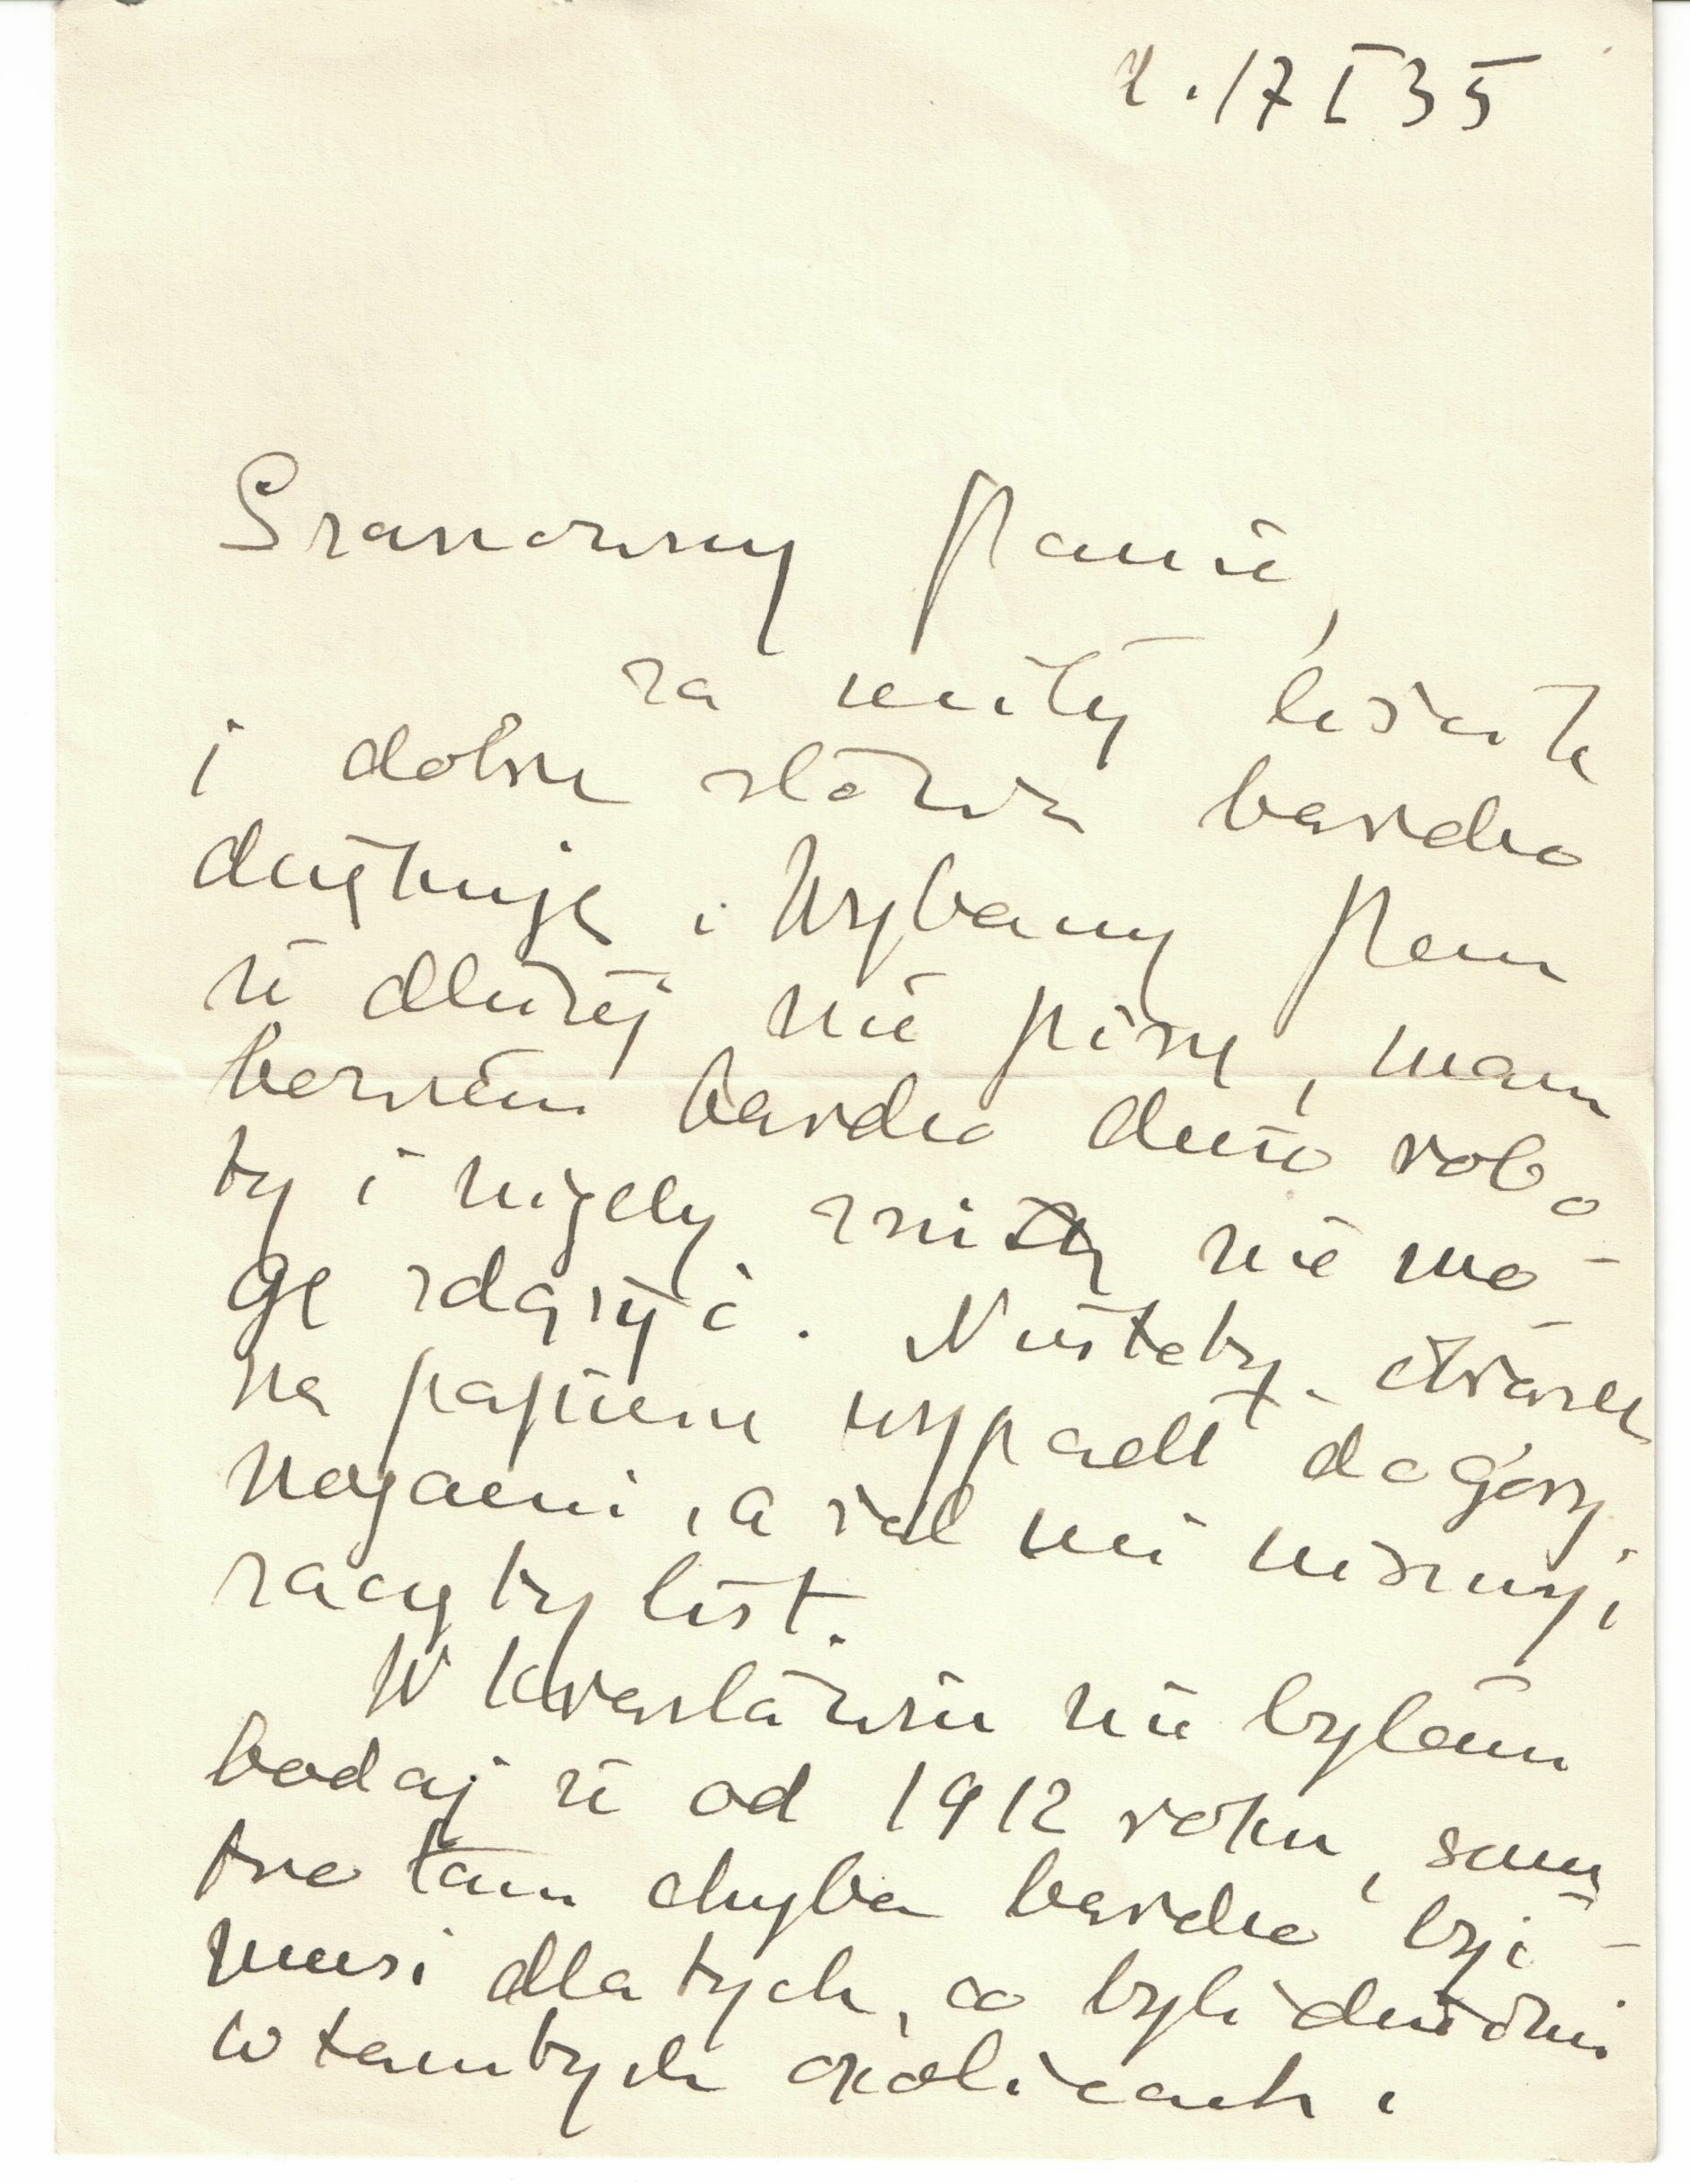 Z. 17 I 35
Szanowny Panie,
za miły liścik
i dobre słowa bardzo
dziękuję. Wybaczy Pan
że dłużej nie piszę, mam
bowiem bardzo dużo robo-
ty i nigdy z nią nie mo-
gę zdążyć. Niestety
na papierze wypadł do góry
nogami, a żal mi niszczyć
zaczęty list.
W Krasławiu nie byłem
bodaj że od 1912 roku, smu-
tno tam chyba bardzo być
musi dla tych, co byli dziećmi
w tamtych okolicach.